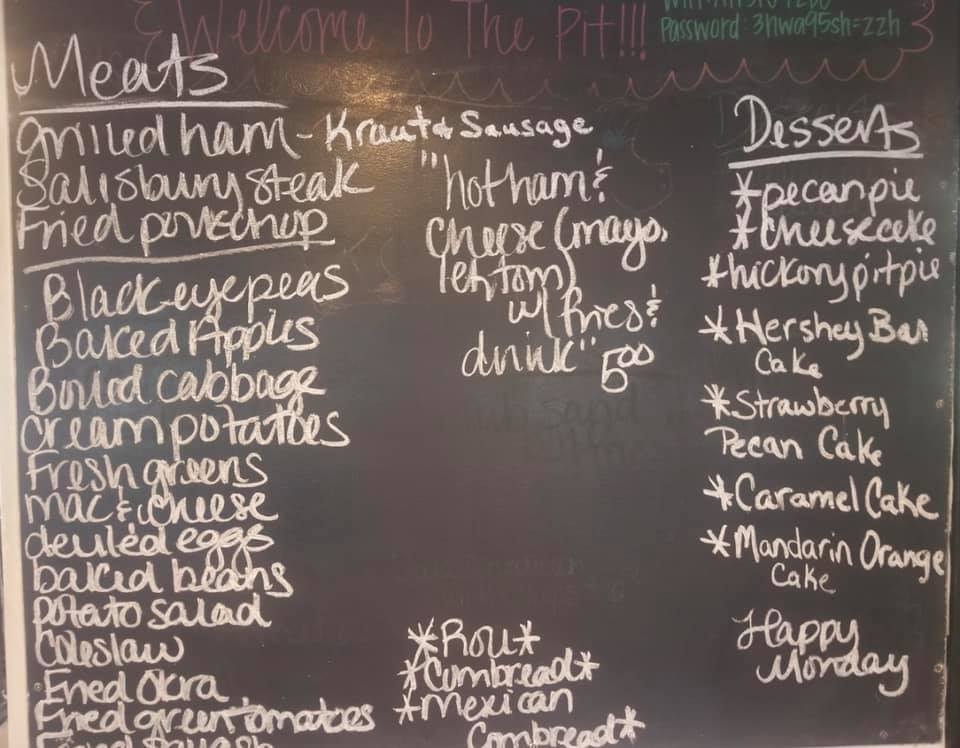 Welcome To The Pit!!!
Password: 3hwa95sh=zzh
Meats
Grilled ham - Kraut & Sausage
Salisbury steak
Fried porkchop
Blackeyepeas
Baked Apples
Boiled cabbage
cream potatoes
Fresh greens
mac & cheese
deviled eggs
baked beans
potato salad
Coleslaw
Fried Okra
Fried green tomatoes
Fried squash
"hot ham &
cheese (mayo,
let, tom)
w/ fries &
drink" 5.00
*Roll*
*Cornbread*
*mexican
Cornbread*
Desserts
*pecan pie
*cheesecake
*hickory pit pie
*Hershey Bar
Cake
*Strawberry
Pecan Cake
*Caramel Cake
*Mandarin Orange
Cake
Happy
Monday